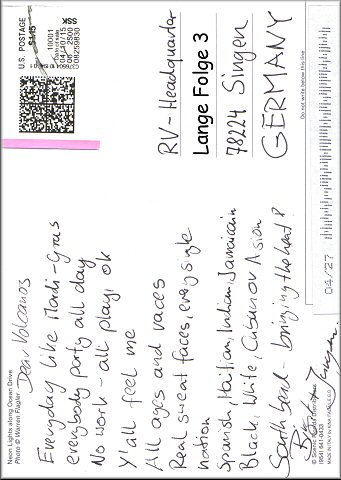 Neon Lights along Ocean Drive
Photo © Warren Flagler
Dear Volcanos
Everyday like Mardi-Gras
everybody party all day
No work - all play, ok
Y'all feel me
All ages and races
Real sweat faces, every single
nation
Spanish, Haitian, Indian, Jamaican
Black, White, Cuban or Asian
bringing the heat!
U.S. POSTAGE
$1.15
10001
04/10/15
SSK
RV-Headquarter
Lange Folge 3
78224 Singen
GERMANY
Do not write below this line
04/27